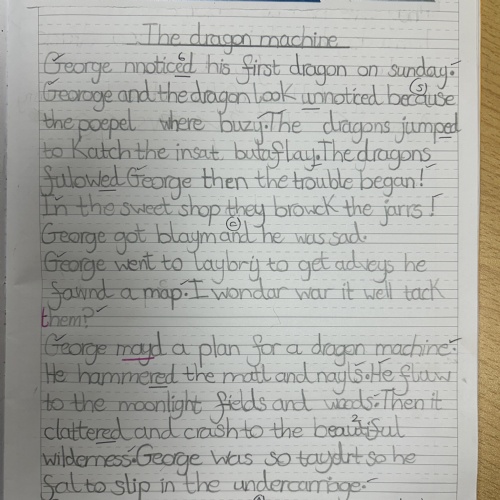 The dragon machine
George nnoticed his first dragon on sunday.
Georoge and the dragon look unnoticed because
the poepel where buzy. The dragons jumped
to Katch the insat. butaflay. The dragons
fulowed George then the trouble began!
In the sweet shop they browck the jarrs!
George got blaym and he was sad.
George went to laybriy to get adveys he
fawnd a map. I wondar war it well tack
them?
George mayd a plan for a dragon machine.
He hammered the matl and nayls. He fluw
to the moonlight fields and woods. Then it
clattered and crash to the beautiful
wilderness. George was so taydrt so he
fal to slip in the undercarriage.